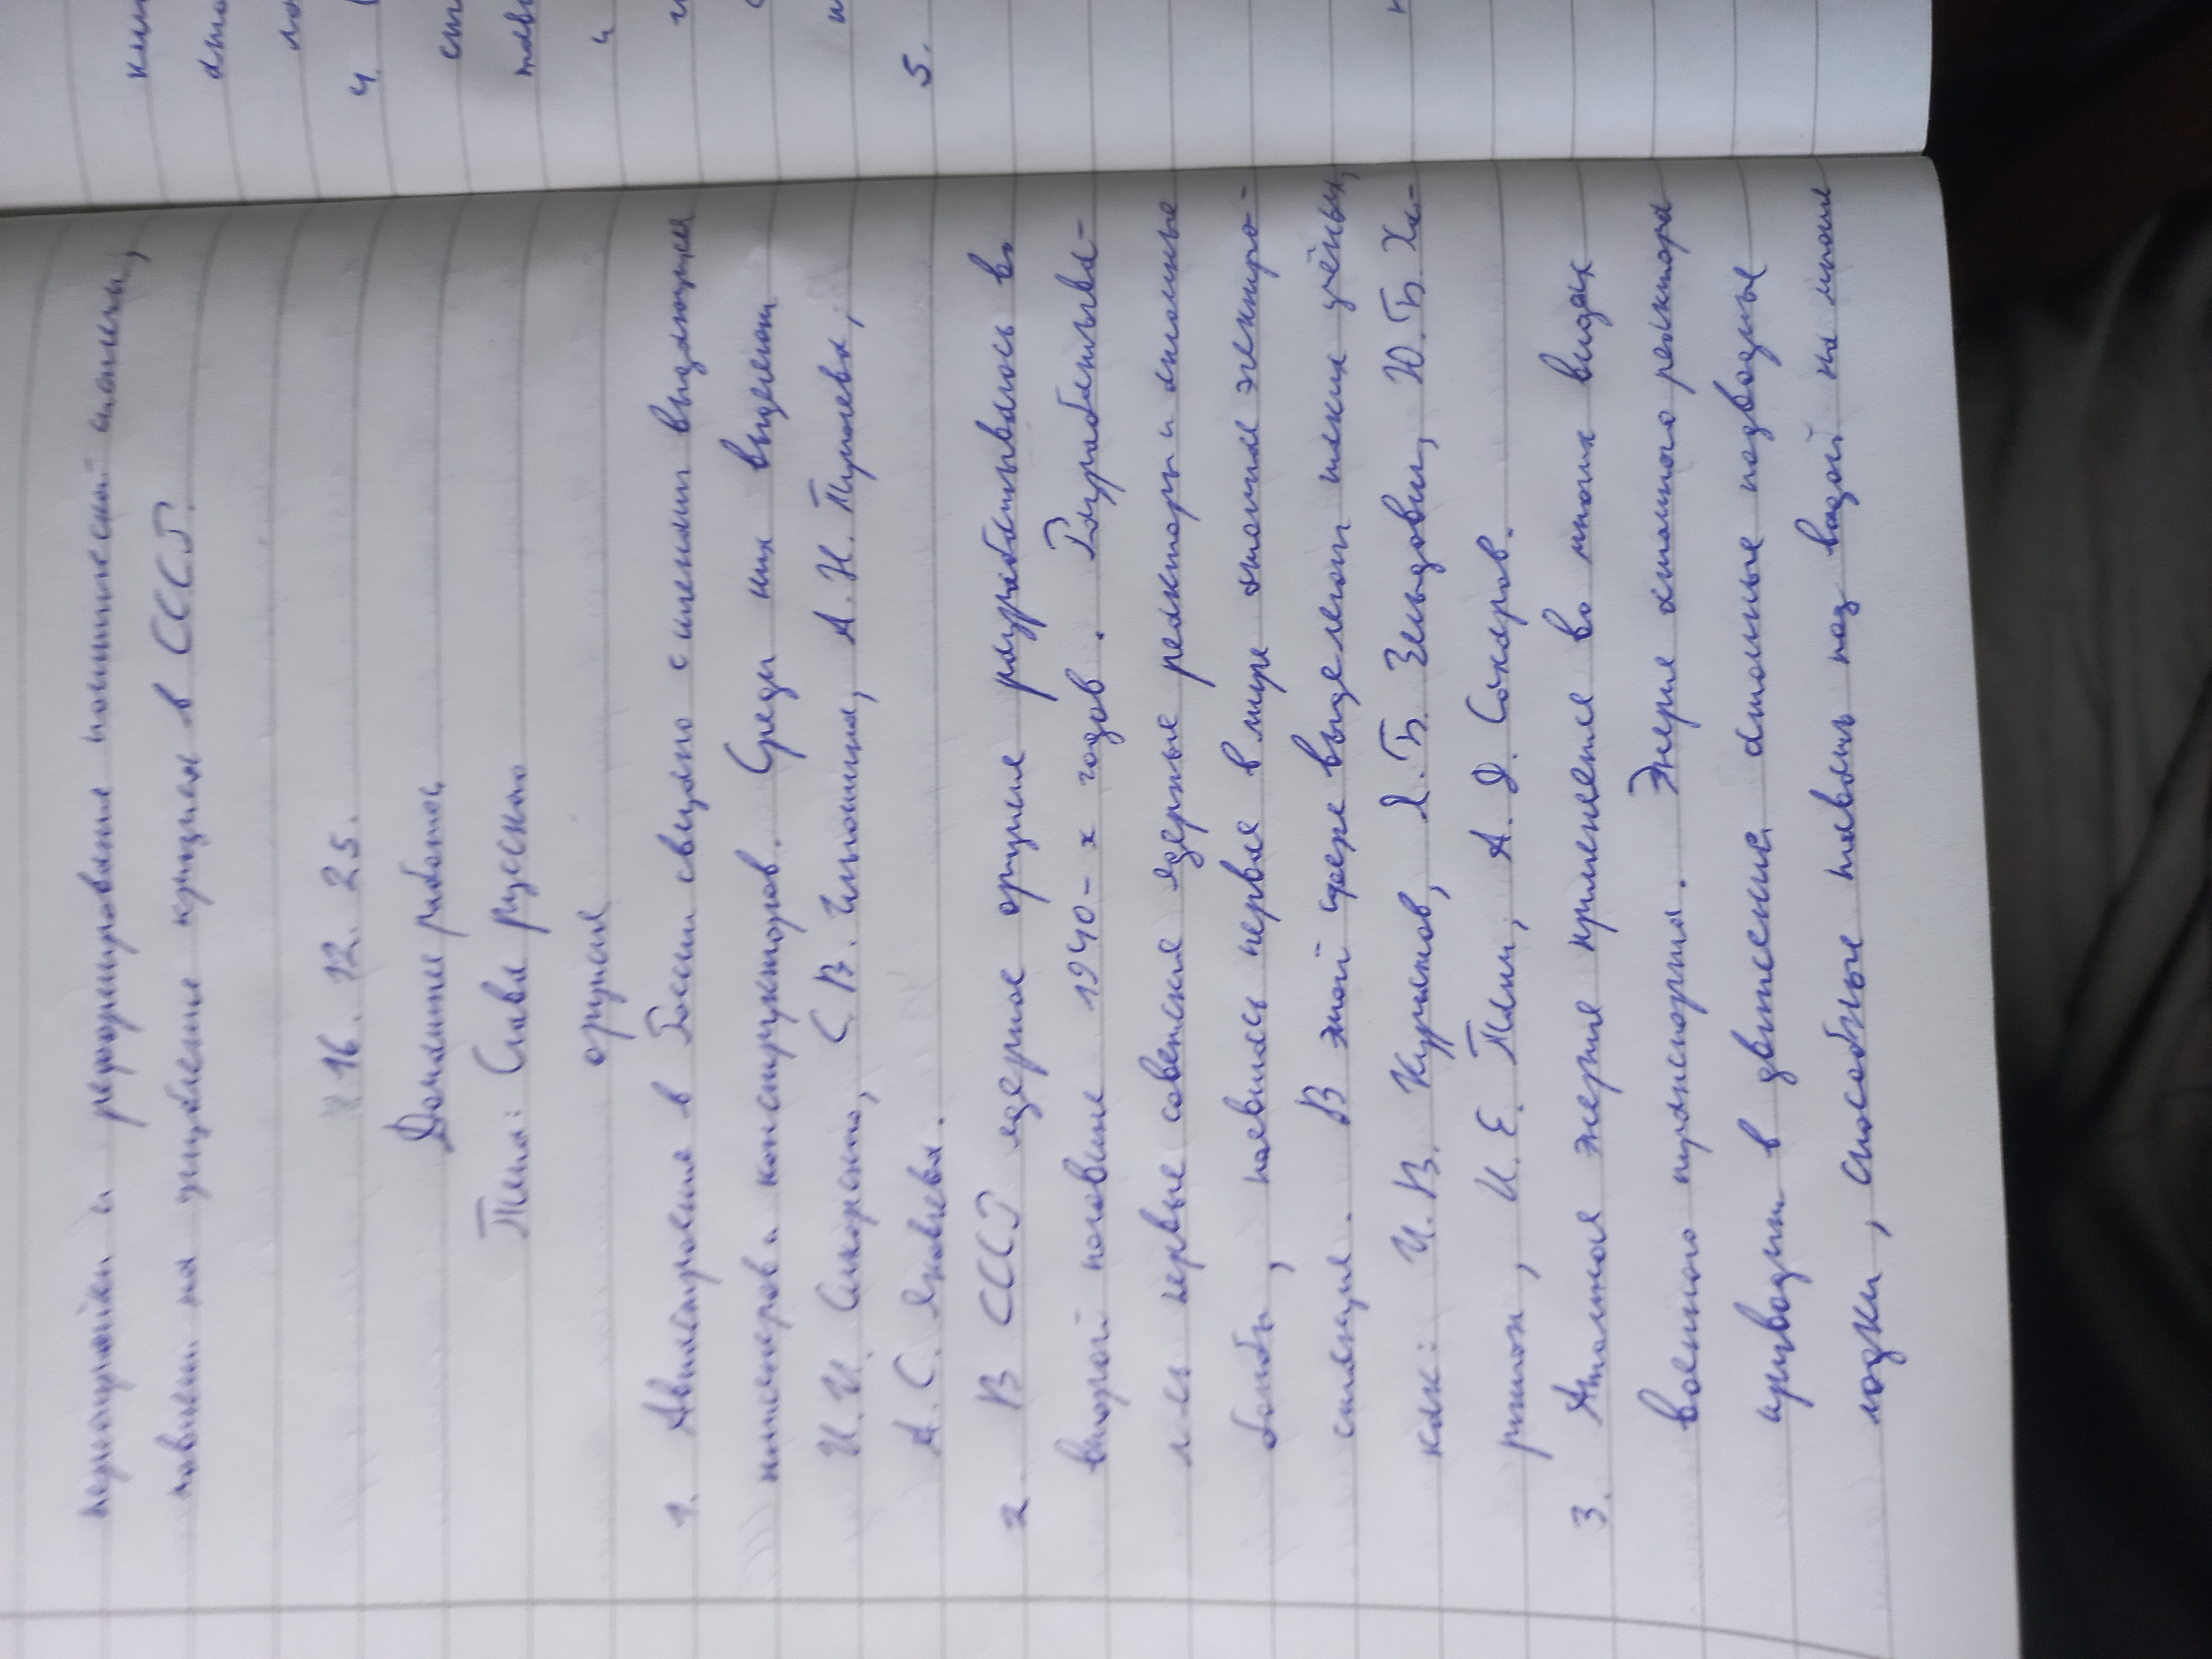 перестройки и реформирования политической системы,
повлиял на углубление кризиса в СССР.
16. 12. 25.
Домашнее работа.
Тема: Слава русского
оружия
1. Авиастроение в России связано с именами выдающихся
инженеров и конструкторов. Среди них выделяют
И. И. Сикорского, С. В. Ильюшина, А. Н. Туполева,
А. С. Яковлева.
2. В СССР ядерное оружие разрабатывалось во
второй половине 1940-х годов. Разрабатыва-
лись первые советские ядерные реакторы и атомные
бомбы, появилась первая в мире атомная электро-
станция. В этой сфере выделяют таких учёных,
как: И. В. Курчатов, Я. Б. Зельдович, Ю. Б. Ха-
ритон, И. Е. Тамм, А. Д. Сахаров.
3. Атомная энергия применяется во многих видах
военного транспорта. Энергия атомного реактора
приводит в движение атомные подводные
лодки, способные плавать под водой
5.